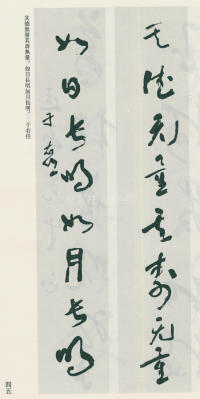 其德无量其壽无量
如日長明如月長明
于右任
其德無量其壽無量，如日長明如月長明。 于右任
四五